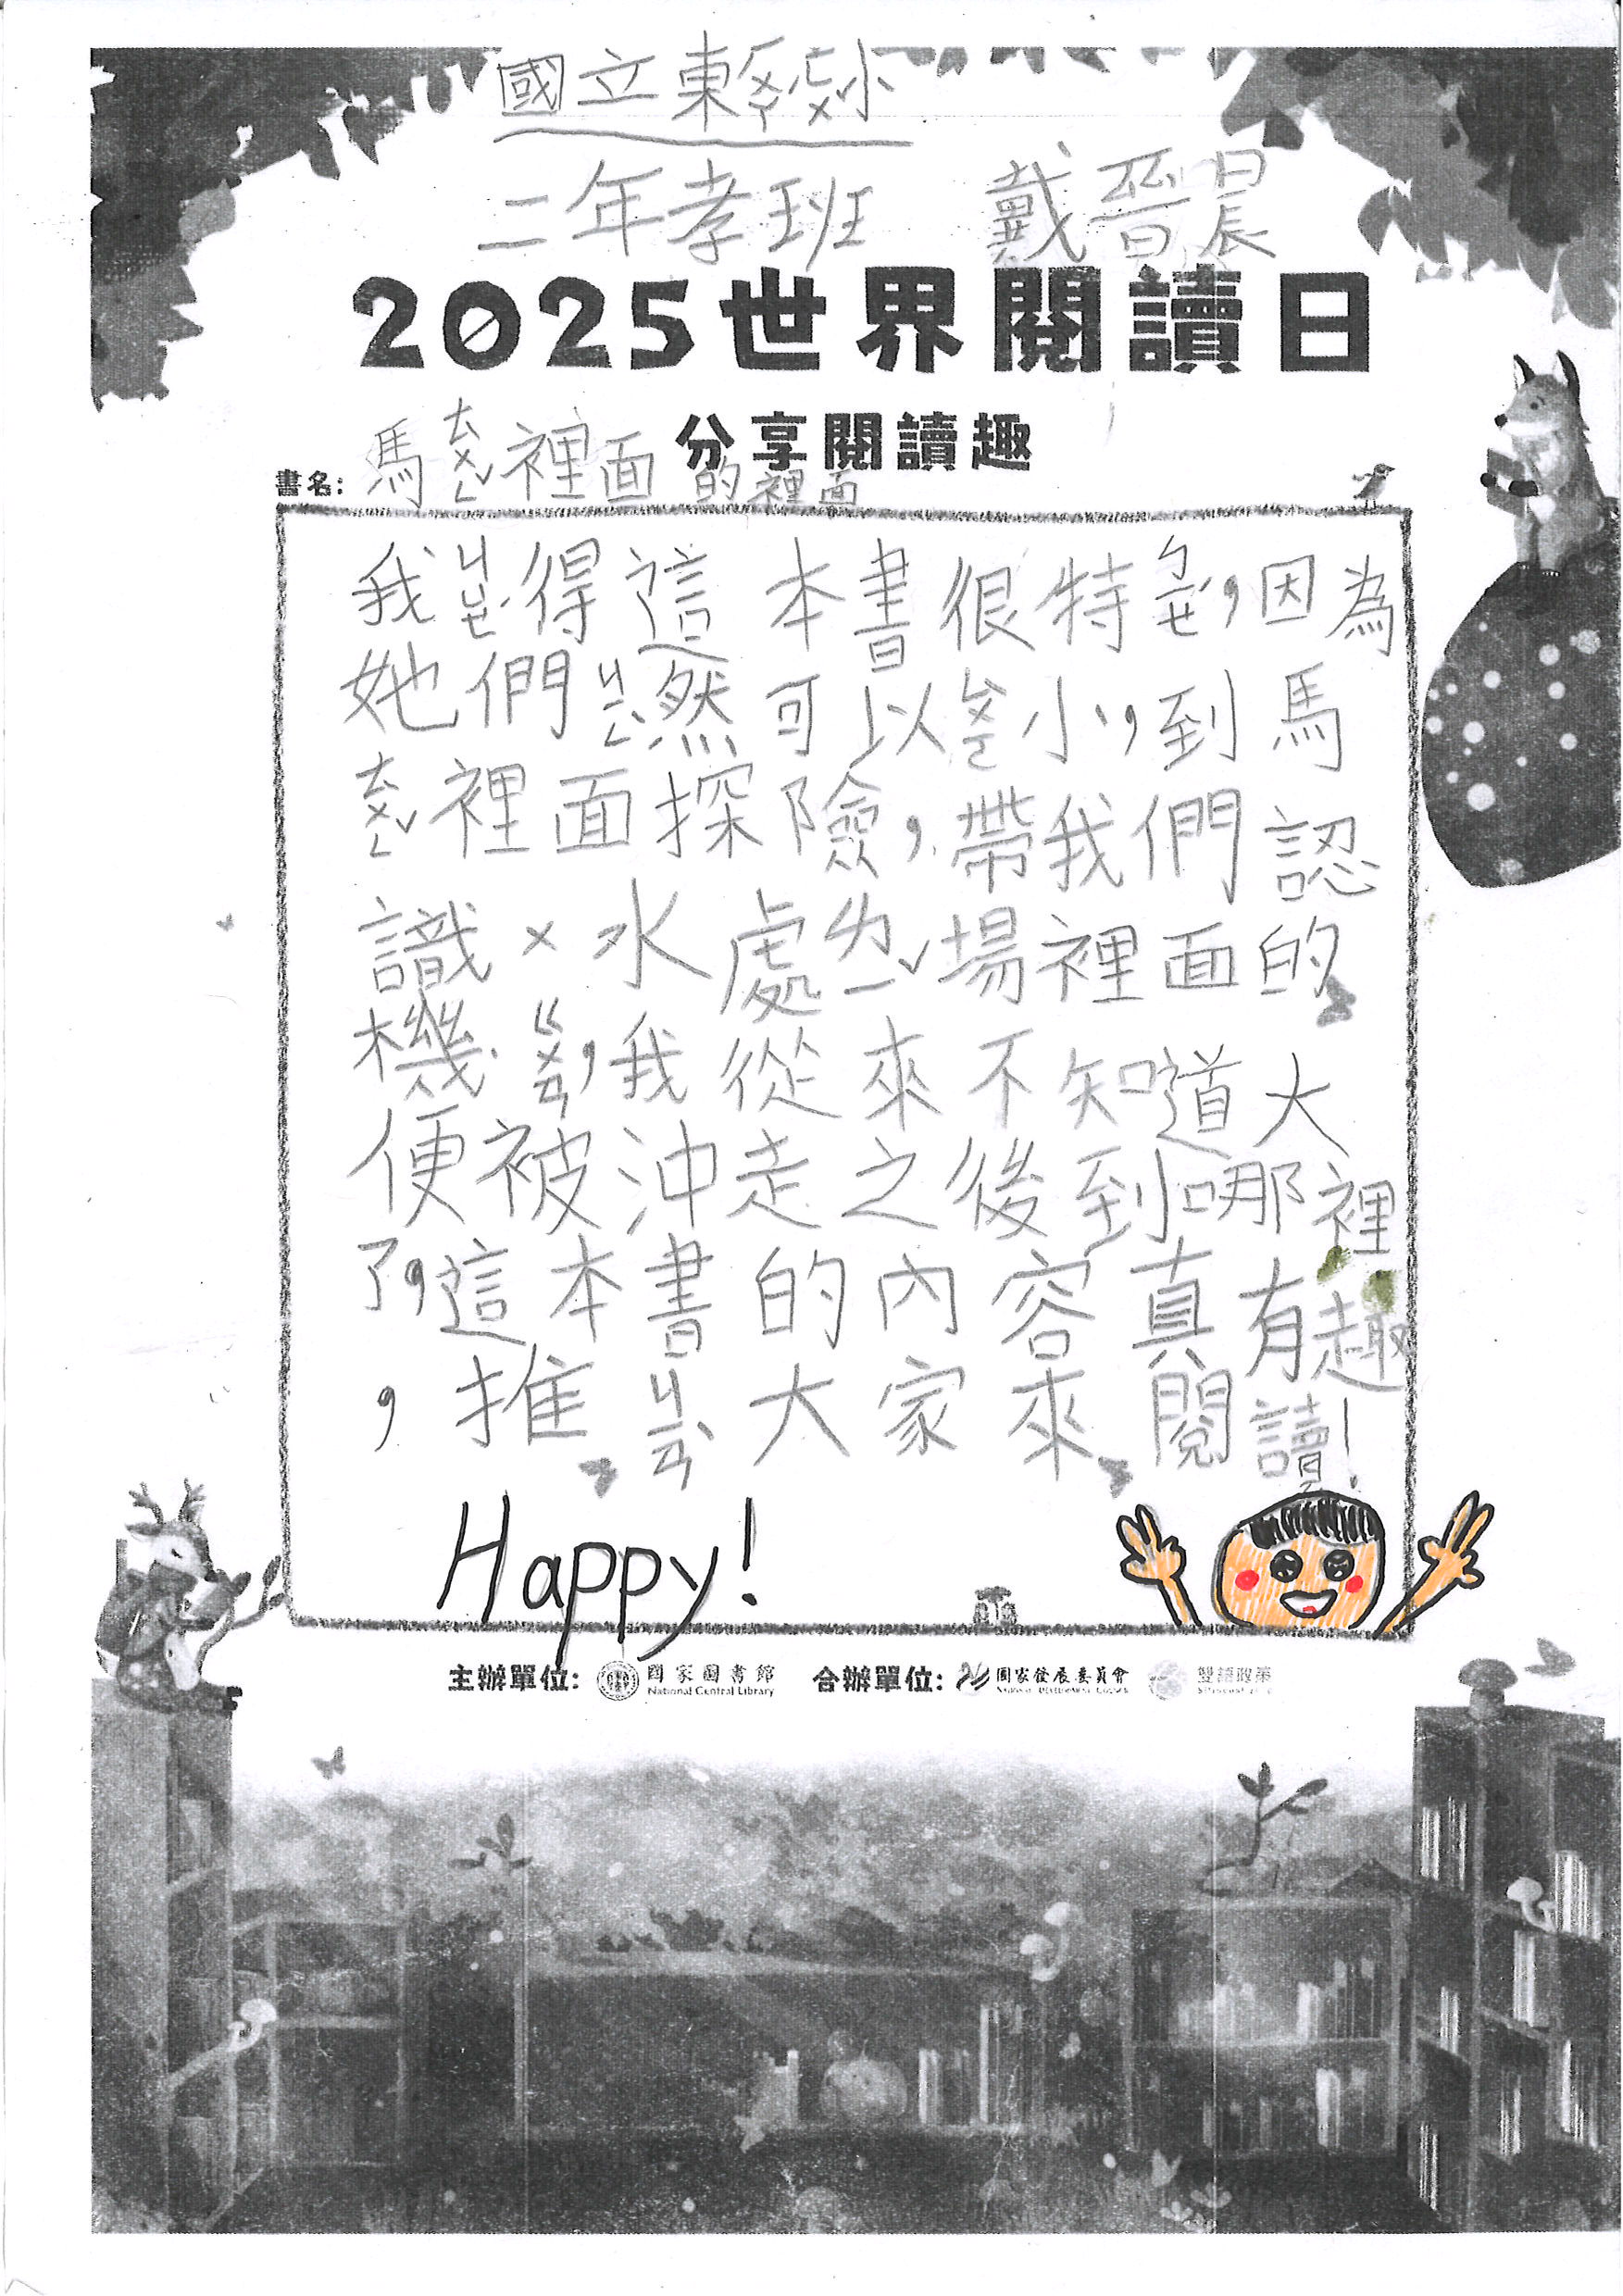 國立東ㄏㄨㄚˊㄈㄨˋ小
二年孝班 戴晉晨
2025世界閱讀日
分享閱讀趣
書名: 馬ㄊㄨㄥˇ裡面的裡面
我ㄐㄩㄝˊ得這本書很特ㄅㄧㄝˊ,因為
她們ㄐㄩ然可以ㄙㄨㄛ小,到馬
ㄊㄨㄥˇ裡面探險,帶我們認
識ㄨ水處ㄌㄧˇ場裡面的
機ㄍㄨㄢ,我從來不知道大
便被沖走之後到哪裡
了,這本書的內容真有趣
,推ㄐㄧㄢˋ大家來閱讀!
Happy!
主辦單位: 國家圖書館 National Central Library 合辦單位: 國家發展委員會 雙語政策